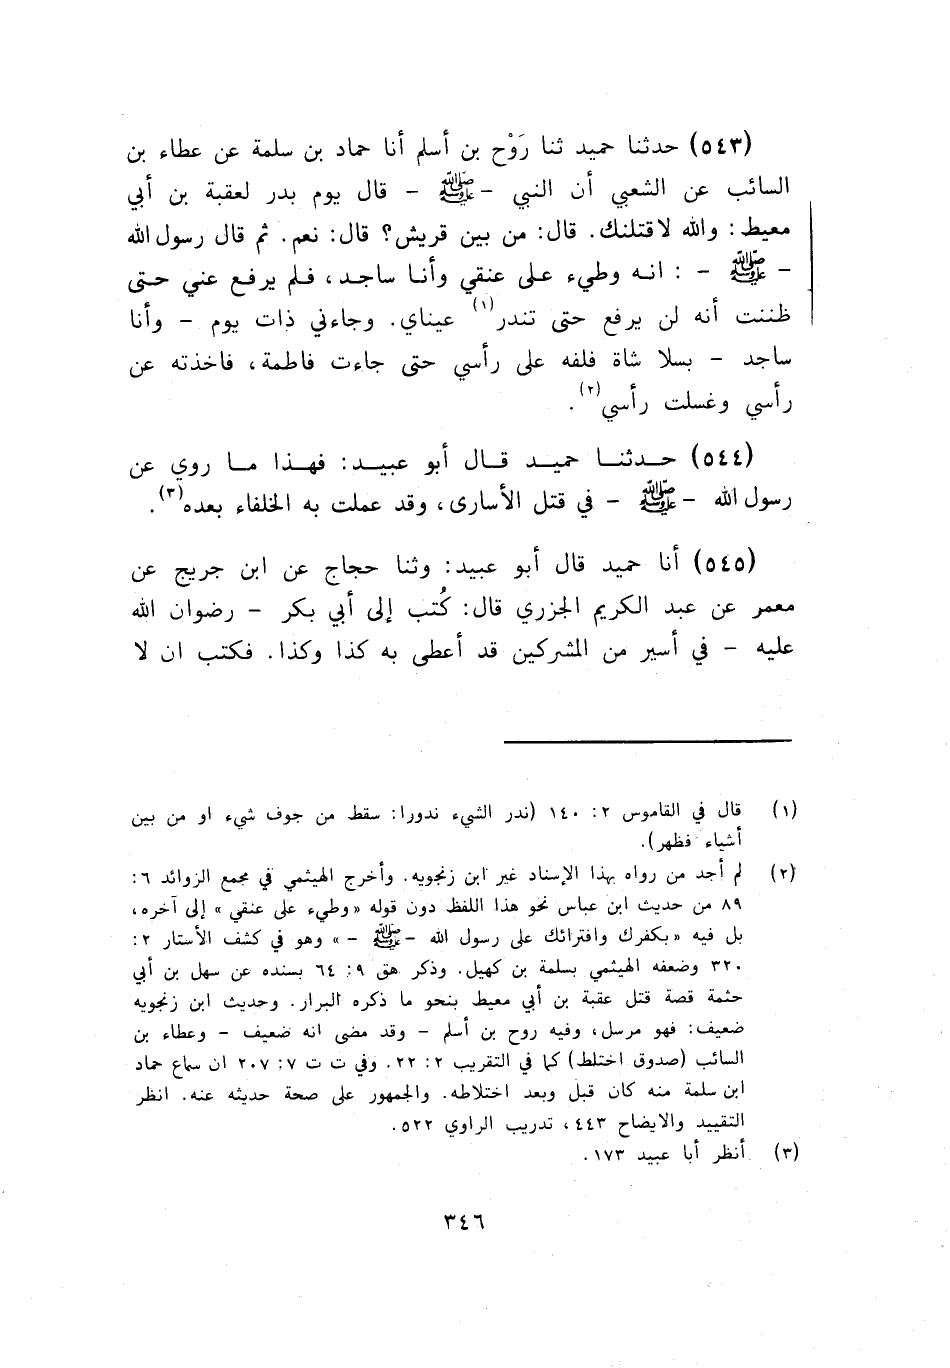 (٥٤٣) حدثنا حميد ثنا رَوْح بن أسلم أنا حماد بن سلمة عن عطاء بن
السائب عن الشعبي أن النبي - ﷺ - قال يوم بدر لعقبة بن أبي
معيط: والله لاقتلنك. قال: من بين قريش؟ قال: نعم. ثم قال رسول الله
- ﷺ - : انه وطيء على عنقي وأنا ساجد، فلم يرفع عني حتى
ظننت أنه لن يرفع حتى تندر(١) عيناي. وجاءني ذات يوم - وأنا
ساجد - بسلا شاة فلفه على رأسي حتى جاءت فاطمة، فاخذته عن
رأسي وغسلت رأسي(٢).
(٥٤٤) حدثنا حميد قال أبو عبيد: فهذا ما روي عن
رسول الله - ﷺ - في قتل الأسارى، وقد عملت به الخلفاء بعده(٣).
(٥٤٥) أنا حميد قال أبو عبيد: وثنا حجاج عن ابن جريج عن
معمر عن عبد الكريم الجزري قال: كُتب إلى أبي بكر - رضوان الله
عليه - في أسير من المشركين قد أعطى به كذا وكذا. فكتب ان لا
(١) قال في القاموس ٢: ١٤٠ (ندر الشيء ندورا: سقط من جوف شيء او من بين
أشياء فظهر).
(٢) لم أجد من رواه بهذا الإسناد غير ابن زنجويه. وأخرج الهيثمي في مجمع الزوائد ٦:
٨٩ من حديث ابن عباس نحو هذا اللفظ دون قوله «وطيء على عنقي» إلى آخره،
بل فيه «بكفرك وافترائك على رسول الله - ﷺ -» وهو في كشف الأستار ٢:
٣٢٠ وضعفه الهيثمي بسلمة بن كهيل. وذكر هق ٩: ٦٤ بسنده عن سهل بن أبي
حثمة قصة قتل عقبة بن أبي معيط بنحو ما ذكره البرار. وحديث ابن زنجويه
ضعيف: فهو مرسل، وفيه روح بن أسلم - وقد مضى انه ضعيف - وعطاء بن
السائب (صدوق اختلط) كما في التقريب ٢: ٢٢. وفي ت ت ٧: ٢٠٧ ان سماع حماد
ابن سلمة منه كان قبل وبعد اختلاطه. والجمهور على صحة حديثه عنه. انظر
التقييد والايضاح ٤٤٣، تدريب الراوي ٥٢٢.
(٣) أنظر أبا عبيد ١٧٣.
٣٤٦